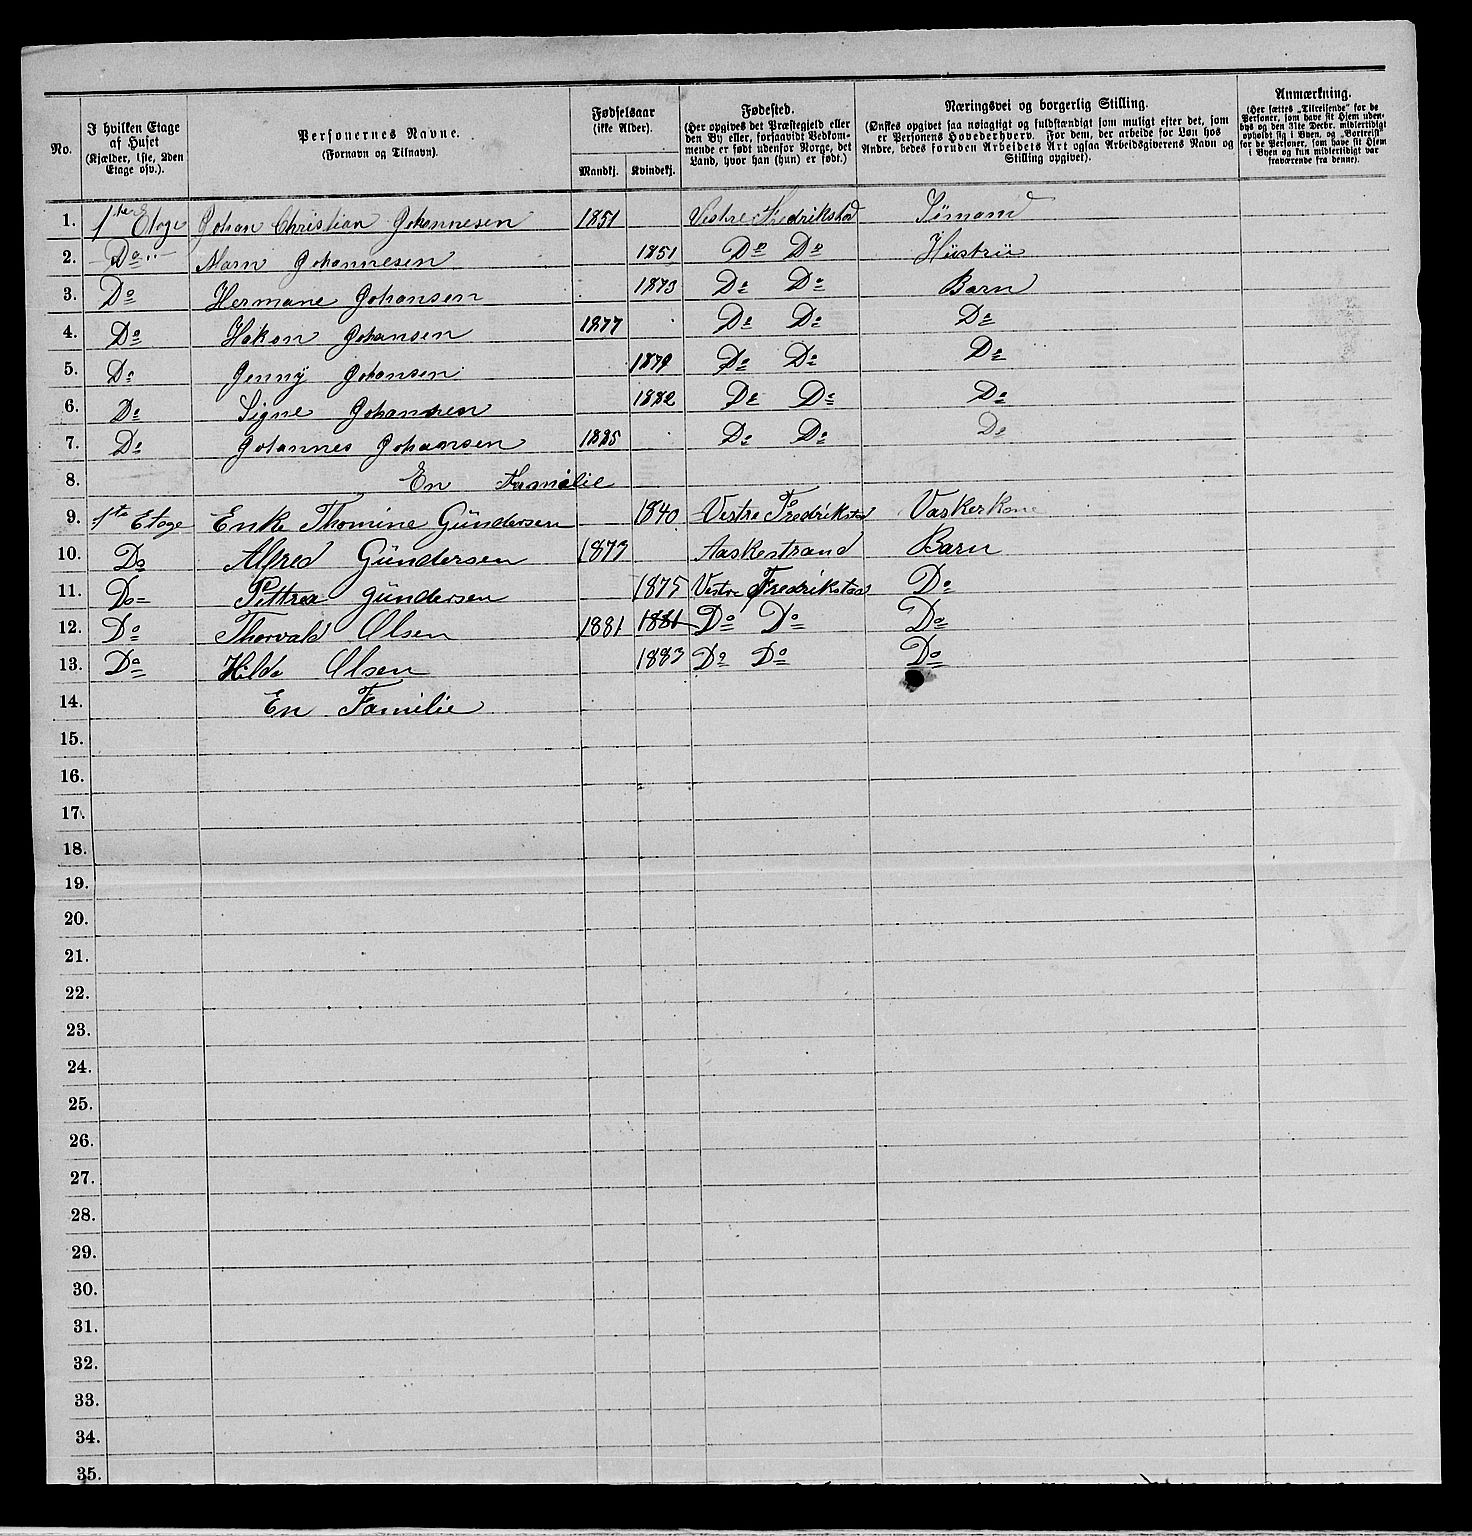 No.
I hvilken Etage af Huset (Kjælder, 1ste, 2den Etage osv.).
Personernes Navne. (Fornavn og Tilnavn).
Fødselsaar (ikke Alder).
Mandkj. Kvindekj.
Fødested. (Her opgives det Præstegjeld eller den By eller, forsaavidt Vedkommende er født udenfor Norge, det Land, hvor han (hun) er født.)
Næringsvei og borgerlig Stilling. (Ønskes opgivet saa nøiagtigt og fuldstændigt som muligt efter det, som er Personens Hovederhverv. For dem, der arbeide for Løn hos Andre, bedes foruden Arbeidets Art ogsaa Arbeidsgiverens Navn og Stilling opgivet).
Anmærkning. (Her sættes „Tilreisende“ for de Personer, som have sit Hjem udenbys og den 31te Decbr. midlertidigt opholdt sig i Byen, og „Bortreist“ for de Personer, som have sit Hjem i Byen og kun midlertidigt var fraværende fra denne).
1. 1ste Etage Johan Christian Johannesen 1851 Vestre Fredrikstad Sömand
2. Do Marn Johannesen 1851 Do Do Hüstrü
3. Do Hermane Johansen 1873 Do Do Barn
4. Do Hakon Johansen 1877 Do Do Do
5. Do Jenny Johansen 1879 Do Do Do
6. Do Signe Johansen 1882 Do Do Do
7. Do Johannes Johansen 1885 Do Do Do
8. En Familie
9. 1ste Etage Enke Thomine Gündersen 1840 Vestre Fredrikstad Vaskerkone
10. Do Alfred Gündersen 1873 Aaskestrand Barn
11. Do Pettrea Gündersen 1875 Vestre Fredrikstad Do
12. Do Thorvald Olsen 1881 1881 Do Do Do
13. Do Hilda Olsen 1883 Do Do Do
14. En Familie
15.
16.
17.
18.
19.
20.
21.
22.
23.
24.
25.
26.
27.
28.
29.
30.
31.
32.
33.
34.
35.